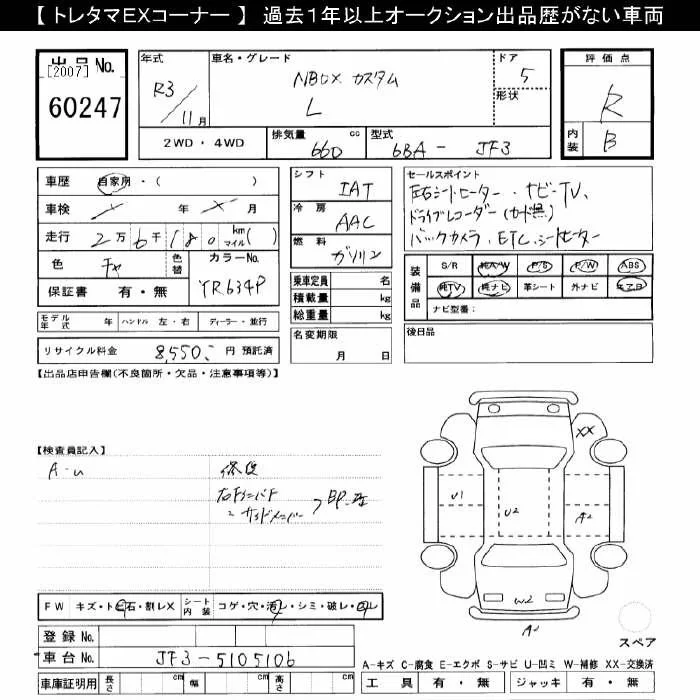 【 トレタマEXコーナー 】 過去1年以上オークション出品歴がない車両
出品 No.
[2007]
60247
年式
R3/11月
車名・グレード
NBOX カスタム
L
ドア
5
形状
評価点
R
内装
B
2WD・4WD
排気量 cc
660
型式
6BA - JF3
車歴 自家用・( )
車検 年 月
走行 2万6千180 km マイル( )
色 茶
色替
カラーNo.
YR634P
保証書 有・無
シフト
IAT
冷房
AAC
燃料
ガソリン
乗車定員 名
積載量 kg
総重量 kg
名変期限
月 日
セールスポイント
左右シートヒーター・ナビ・TV、
ドライブレコーダー(カード無)
バックカメラ、ETC、シートヒーター
装備品
S/R 純A/W P/S P/W ABS
純TV 純ナビ 革シート 外ナビ エアB
ナビ型番:
後日品
モデル年式 年 ハンドル 左・右 ディーラー・並行
リサイクル料金 8,550. 円 預託済
【出品店申告欄(不良箇所・欠品・注意事項等)】
【検査員記入】
A-U
修復
右Fインパネ
〃 サイドメンバー
BP
F W キズ・ト 石・割レX シート内装 コゲ・穴・汚レ・シミ・破レ・ レ
登録 No.
車台 No. JF3-5105106
車庫証明用 長さ cm 幅 cm 高さ cm
XX
U1
U2
A2
W2
A2
スペア
A-キズ C-腐食 E-エクボ S-サビ U-凹ミ W-補修 XX-交換済
工具 有・無 ジャッキ 有・無